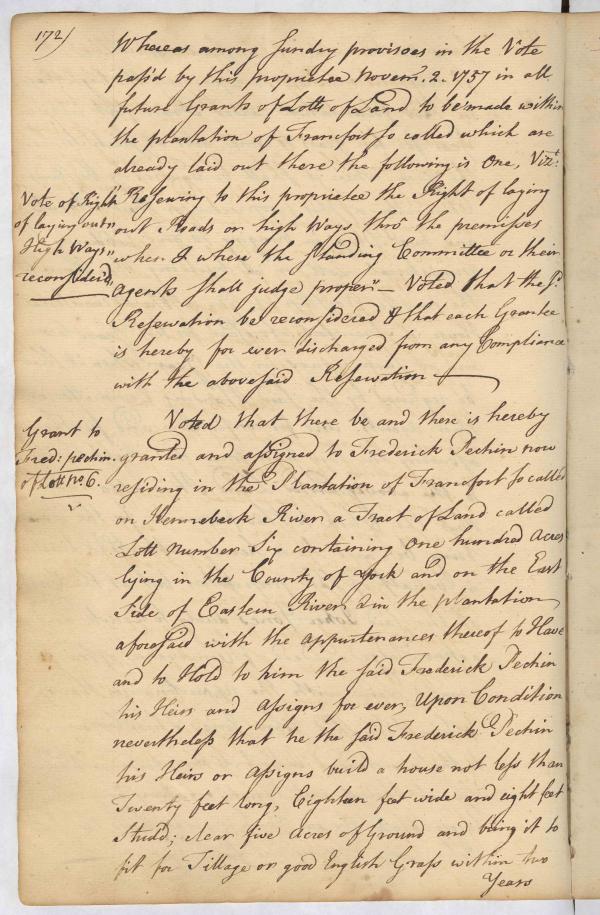 172)
Whereas among Sundry provisoes in the Vote
pass'd by this proprietee Novemr. 2. 1757 in all
future Grants of Lotts of Land to be made within
the plantation of Francfort so called which are
already laid out there the following is One, Vizt:
Vote of Right
of laying out
High Ways
reconsider'd
"Reserving to this proprietee the Right of laying
out Roads or high Ways thro' the premisses
when & where the Standing Committee or their
Agents shall judge proper" — Voted that the sd.
Reservation be reconsidered & that each Grantee
is hereby for ever discharged from any Compliance
with the abovesaid Reservation —
Grant to
Fred: pechin
of Lott no. 6.
Voted that there be and there is hereby
granted and assigned to Frederick Pechin now
residing in the Plantation of Francfort so called
on Kennebeck River a Tract of Land called
Lott Number Six containing One hundred Acres
lying in the County of York and on the East
Side of Eastern River & in the plantation
aforesaid with the appurtenances thereof to Have
and to Hold to him the said Frederick Pechin
his Heirs and Assigns for ever, Upon Condition
nevertheless that he the said Frederick Pechin
his Heirs or Assigns build a house not less than
Twenty feet long, Eighteen feet wide and eight feet
Studd; clear five Acres of Ground and bring it to
fit for Tillage or good English Grass within two
Years